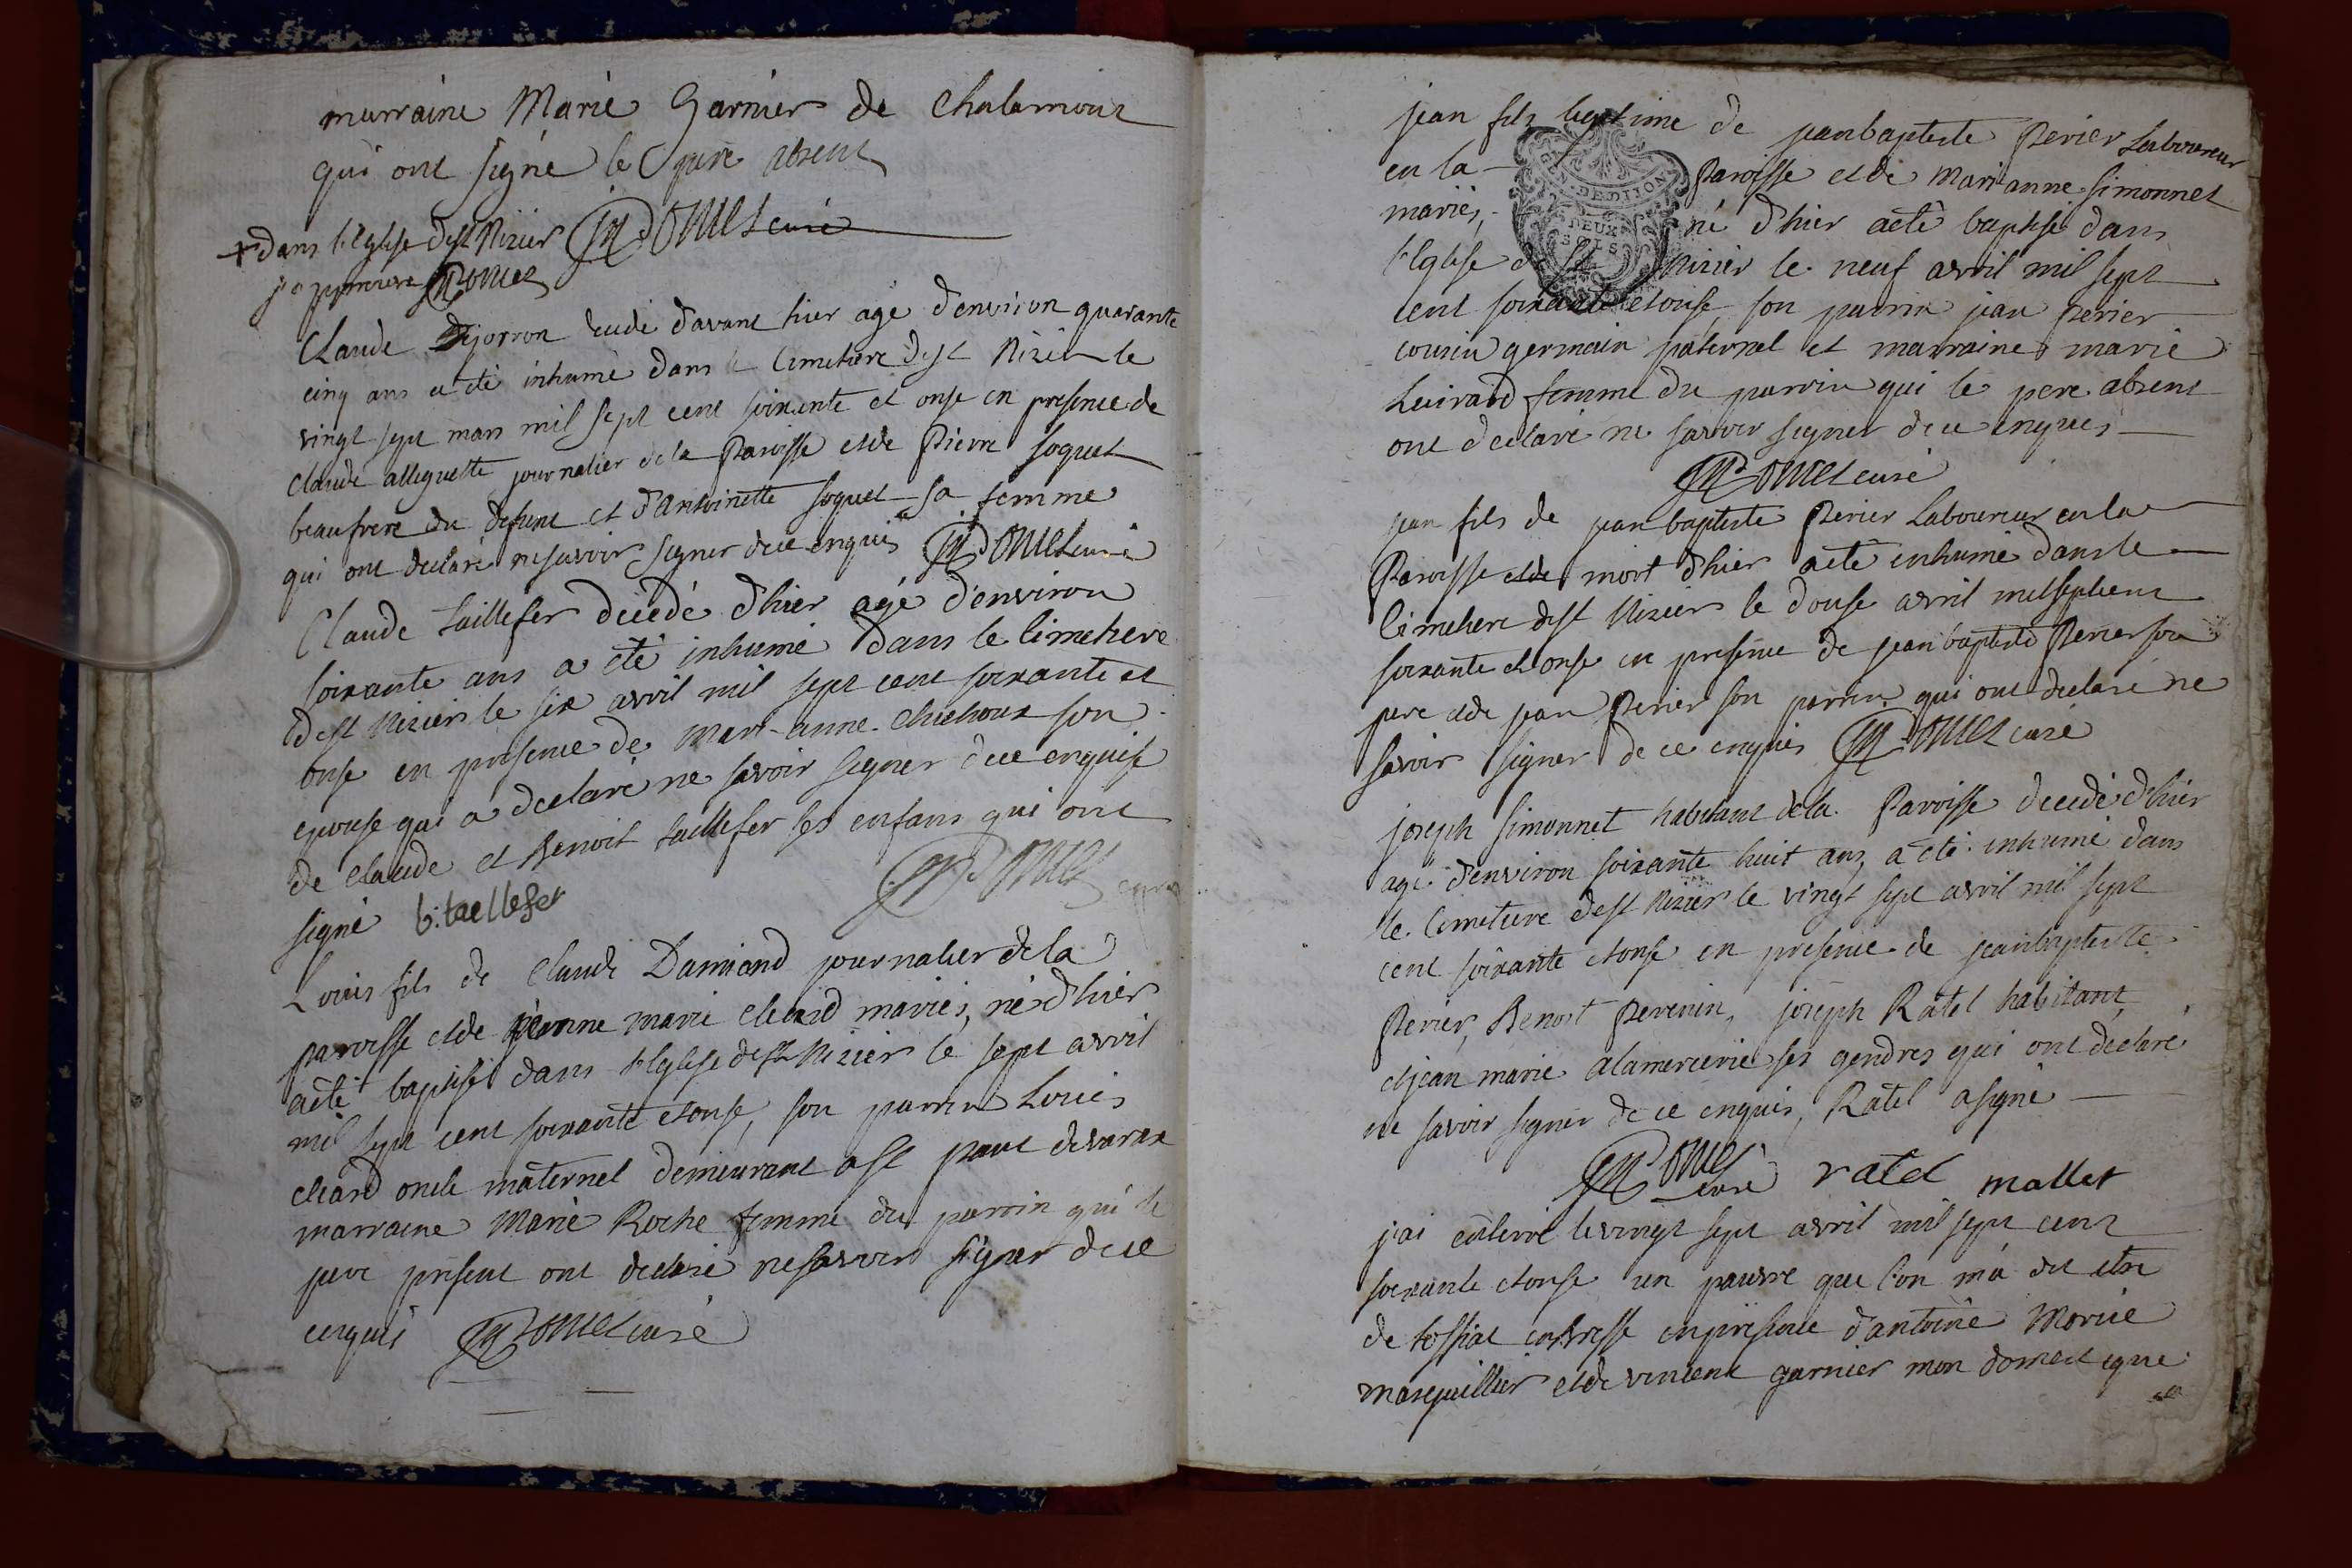 marraine Marie Garnier de Chalamont
qui ont signé le père absent
+ dans l'Eglise de st Nizier curé
j'approuve
Claude décédé d'avant hier agé d'environ quarante
cinq ans a été inhumé dans le Cimetiere de st Nizier le
vingt sept mars mil sept cent soixante et onse en presence de
Claude alleguette journalier de la Paroisse et de Pierre soquet
beaufrere du defunt et d'Antoinette soquet sa femme
qui ont declaré ne savoir signer de ce enquis curé
Claude taillefer décédé d'hier agé d'environ
soixante ans a été inhumé dans le Cimetiere
de st Nizier le six avril mil sept cent soixante et
onse en presence de Mari-anne son
epouse qui a declaré ne savoir signer de ce enquise
de claude et Benoit taillefer ses enfans qui ont
signé b: taellefer
Louis fils de Claude Damiand journalier de la
paroisse et de jeanne marie cleard mariés, né d'hier
a été baptisé dans l'Eglise de st Nizier le sept avril
mil sept cent soixante et onse, son parrin Louis
cleard oncle maternel demeurant a st paul de varax
marraine Marie Roche femme du parrin qui le
pere présent ont declaré ne savoir signer de ce
enquis curé
jean fils legitime de jean baptiste Perier Laboureur
en la Paroisse et de Marianne Simonnet
mariés, né d'hier a été baptisé dans
l'Eglise de st Nizier le neuf avril mil sept
cent soixante et onse, son parrin jean Perier
cousin germain paternel et marraine marie
femme du parrin qui le pere absent
ont declaré ne savoir signer de ce enquis
curé
jean fils de jean baptiste Perier Laboureur en la
Paroisse mort d'hier a été inhumé dans le
Cimetiere de st Nizier le douse avril mil sept cent
soixante et onse en presence de jean baptiste Perier son
pere et de jean Perier son parrin qui ont declaré ne
savoir signer de ce enquis curé
joseph Simonnet habitant de la Paroisse décédé d'hier
agé d'environ soixante huit ans, a été inhumé dans
le Cimetiere de st Nizier le vingt sept avril mil sept
cent soixante et onse en presence de jean baptiste
Perier, Benoit Pevenin, joseph Ratel habitant,
et jean marie alamercerie ses gendres qui ont declaré
ne savoir signer de ce enquis, Ratel a signé
curé ratel mallet
j'ai enterré le vingt sept avril mil sept cent
soixante et onse un pauvre que l'on m'a dit etre
de tossiat en Bresse en présence d'antoine Morice
marguillier et de vincent garnier mon domestique